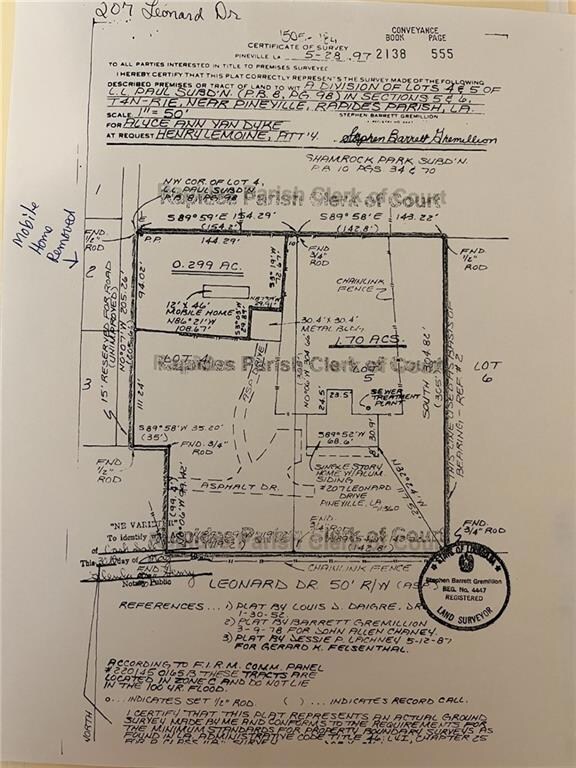 207 Leonard Dr
CONVEYANCE
BOOK PAGE
CERTIFICATE OF SURVEY
PINEVILLE LA 5-28.97 2138 555
TO ALL PARTIES INTERESTED IN TITLE TO PREMISES SURVEYED
I HEREBY CERTIFY THAT THIS PLAT CORRECTLY REPRESENTS THE SURVEY MADE OF THE FOLLOWING
DESCRIBED PREMISES OR TRACT OF LAND TO WIT A DIVISION OF LOTS 4 & 5 OF
L.L. PAUL SUBD'N (P.B. 8, PG. 98) IN SECTIONS 5 & 6,
T4N-R1E, NEAR PINEVILLE, RAPIDES PARISH, LA.
SCALE 1"= 50'
STEPHEN BARRETT GREMILLION
FOR ALYCE ANN VAN DYKE
AT REQUEST HENRY LEMOINE, ATT'Y. Stephen Barrett Gremillion
SHAMROCK PARK SUBD'N.
P.B. 10 PGS 34 & 70
NW COR. OF LOT 4,
Rapides Parish Clerk of Court
S89°59'E 154.29' S89°58'E 143.22'
(154.2') (142.8')
P.P. 144.29'
FND. 1/2" ROD
FND. 3/4" ROD
FND. 1/2" ROD
Mobile Home Removed
1
2
3
0.299 AC.
94.02'
CHAINLINK FENCE
12' X 46'
MOBILE HOME
N86°21'W
108.67'
30.4'X 30.4'
METAL BLDG
1.70 ACS.
15' RESERVED FOR ROAD
(UNIMPROVED)
N0°07'W 205.26'
Rapides Parish Clerk of Court
LOT 4
LOT 5
LOT 6
SOUTH 304.86'
(305')
THIS LINE USED AS BASIS OF
BEARING - REF. # 2
SEWER
TREATMENT
PLANT
111.24'
24.5
23.5
30.9'
S89°58'W 35.20'
(35')
FND. 3/4" ROD
S89°52'W
68.6'
N32°24'W
117.52'
FND. 1/2" ROD
ASPHALT DR.
SINGLE STORY
HOME W/ALUM.
SIDING
#207 LEONARD
DRIVE
PINEVILLE, LA
71360
"NE VARIETUR"
To identify
This day of
Notary Public
FND. 3/4" ROD
Rapides Parish Clerk of Court
(142.8')
CHAINLINK FENCE
LEONARD DR. 50' R/W
STATE OF LOUISIANA
Stephen Barrett Gremillion
REG. No. 4447
REGISTERED
LAND SURVEYOR
REFERENCES... 1) PLAT BY LOUIS J. DAIGRE, DR.
1-30-52.
2) PLAT BY BARRETT GREMILLION
3-9-78 FOR JOHN ALLEN CHANEY.
3) PLAT BY JESSIE P. LACHNEY 5-12-87
FOR GERARD K. FELSENTHAL.
ACCORDING TO F.I.R.M. COMM. PANEL
#220145 0165 B THESE TRACTS ARE
LOCATED IN ZONE C AND DO NOT LIE
IN THE 100 YR. FLOOD.
o...INDICATES SET 1/2" ROD. ( )...INDICATES RECORD CALL.
I CERTIFY THAT THIS PLAT REPRESENTS AN ACTUAL GROUND
SURVEY MADE BY ME AND CONFORMS TO THE REQUIREMENTS FOR
THE MINIMUM STANDARDS FOR PROPERTY BOUNDARY SURVEYS AS
FOUND IN LA. ADMINISTRATIVE CODE TITLE 46, LXI, CHAPTER 25
NORTH